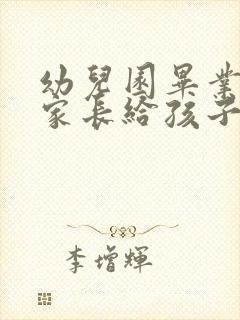 幼兒園畢業
家長給孩子
李增輝